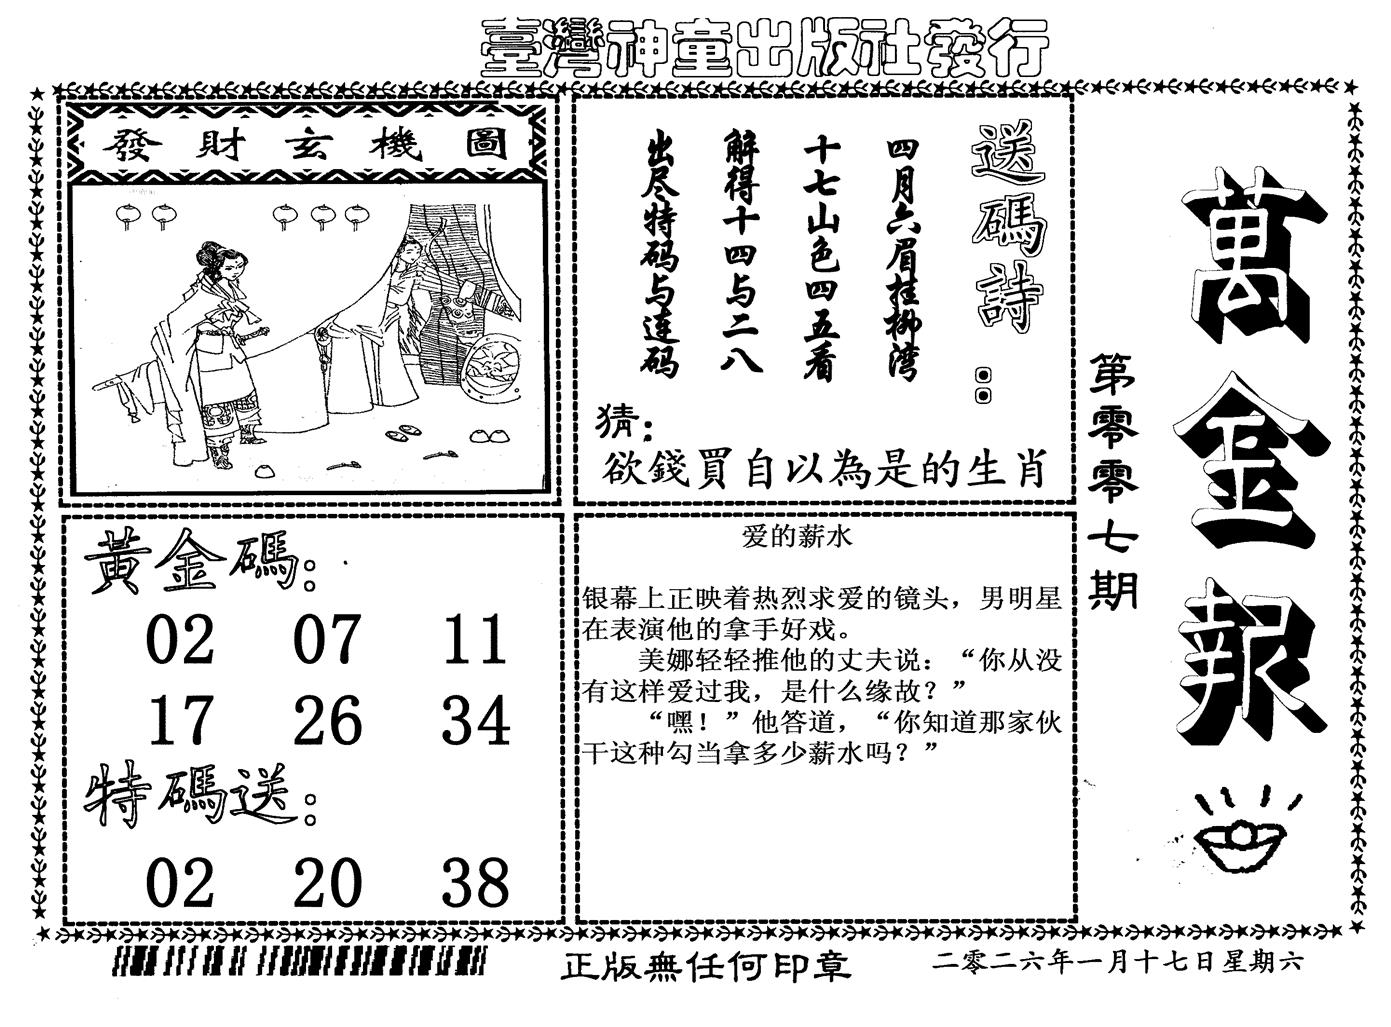 臺灣神童出版社發行
萬金報
第零零七期
發財玄機圖
送碼詩:
四月六眉挂柳湾
十七山色四五看
解得十四与二八
出尽特码与连码
猜:
欲錢買自以為是的生肖
黃金碼:
02 07 11
17 26 34
特碼送:
02 20 38
爱的薪水
银幕上正映着热烈求爱的镜头，男明星
在表演他的拿手好戏。
美娜轻轻推他的丈夫说：“你从没
有这样爱过我，是什么缘故？”
“嘿！”他答道，“你知道那家伙
干这种勾当拿多少薪水吗？”
正版無任何印章
二零二六年一月十七日星期六